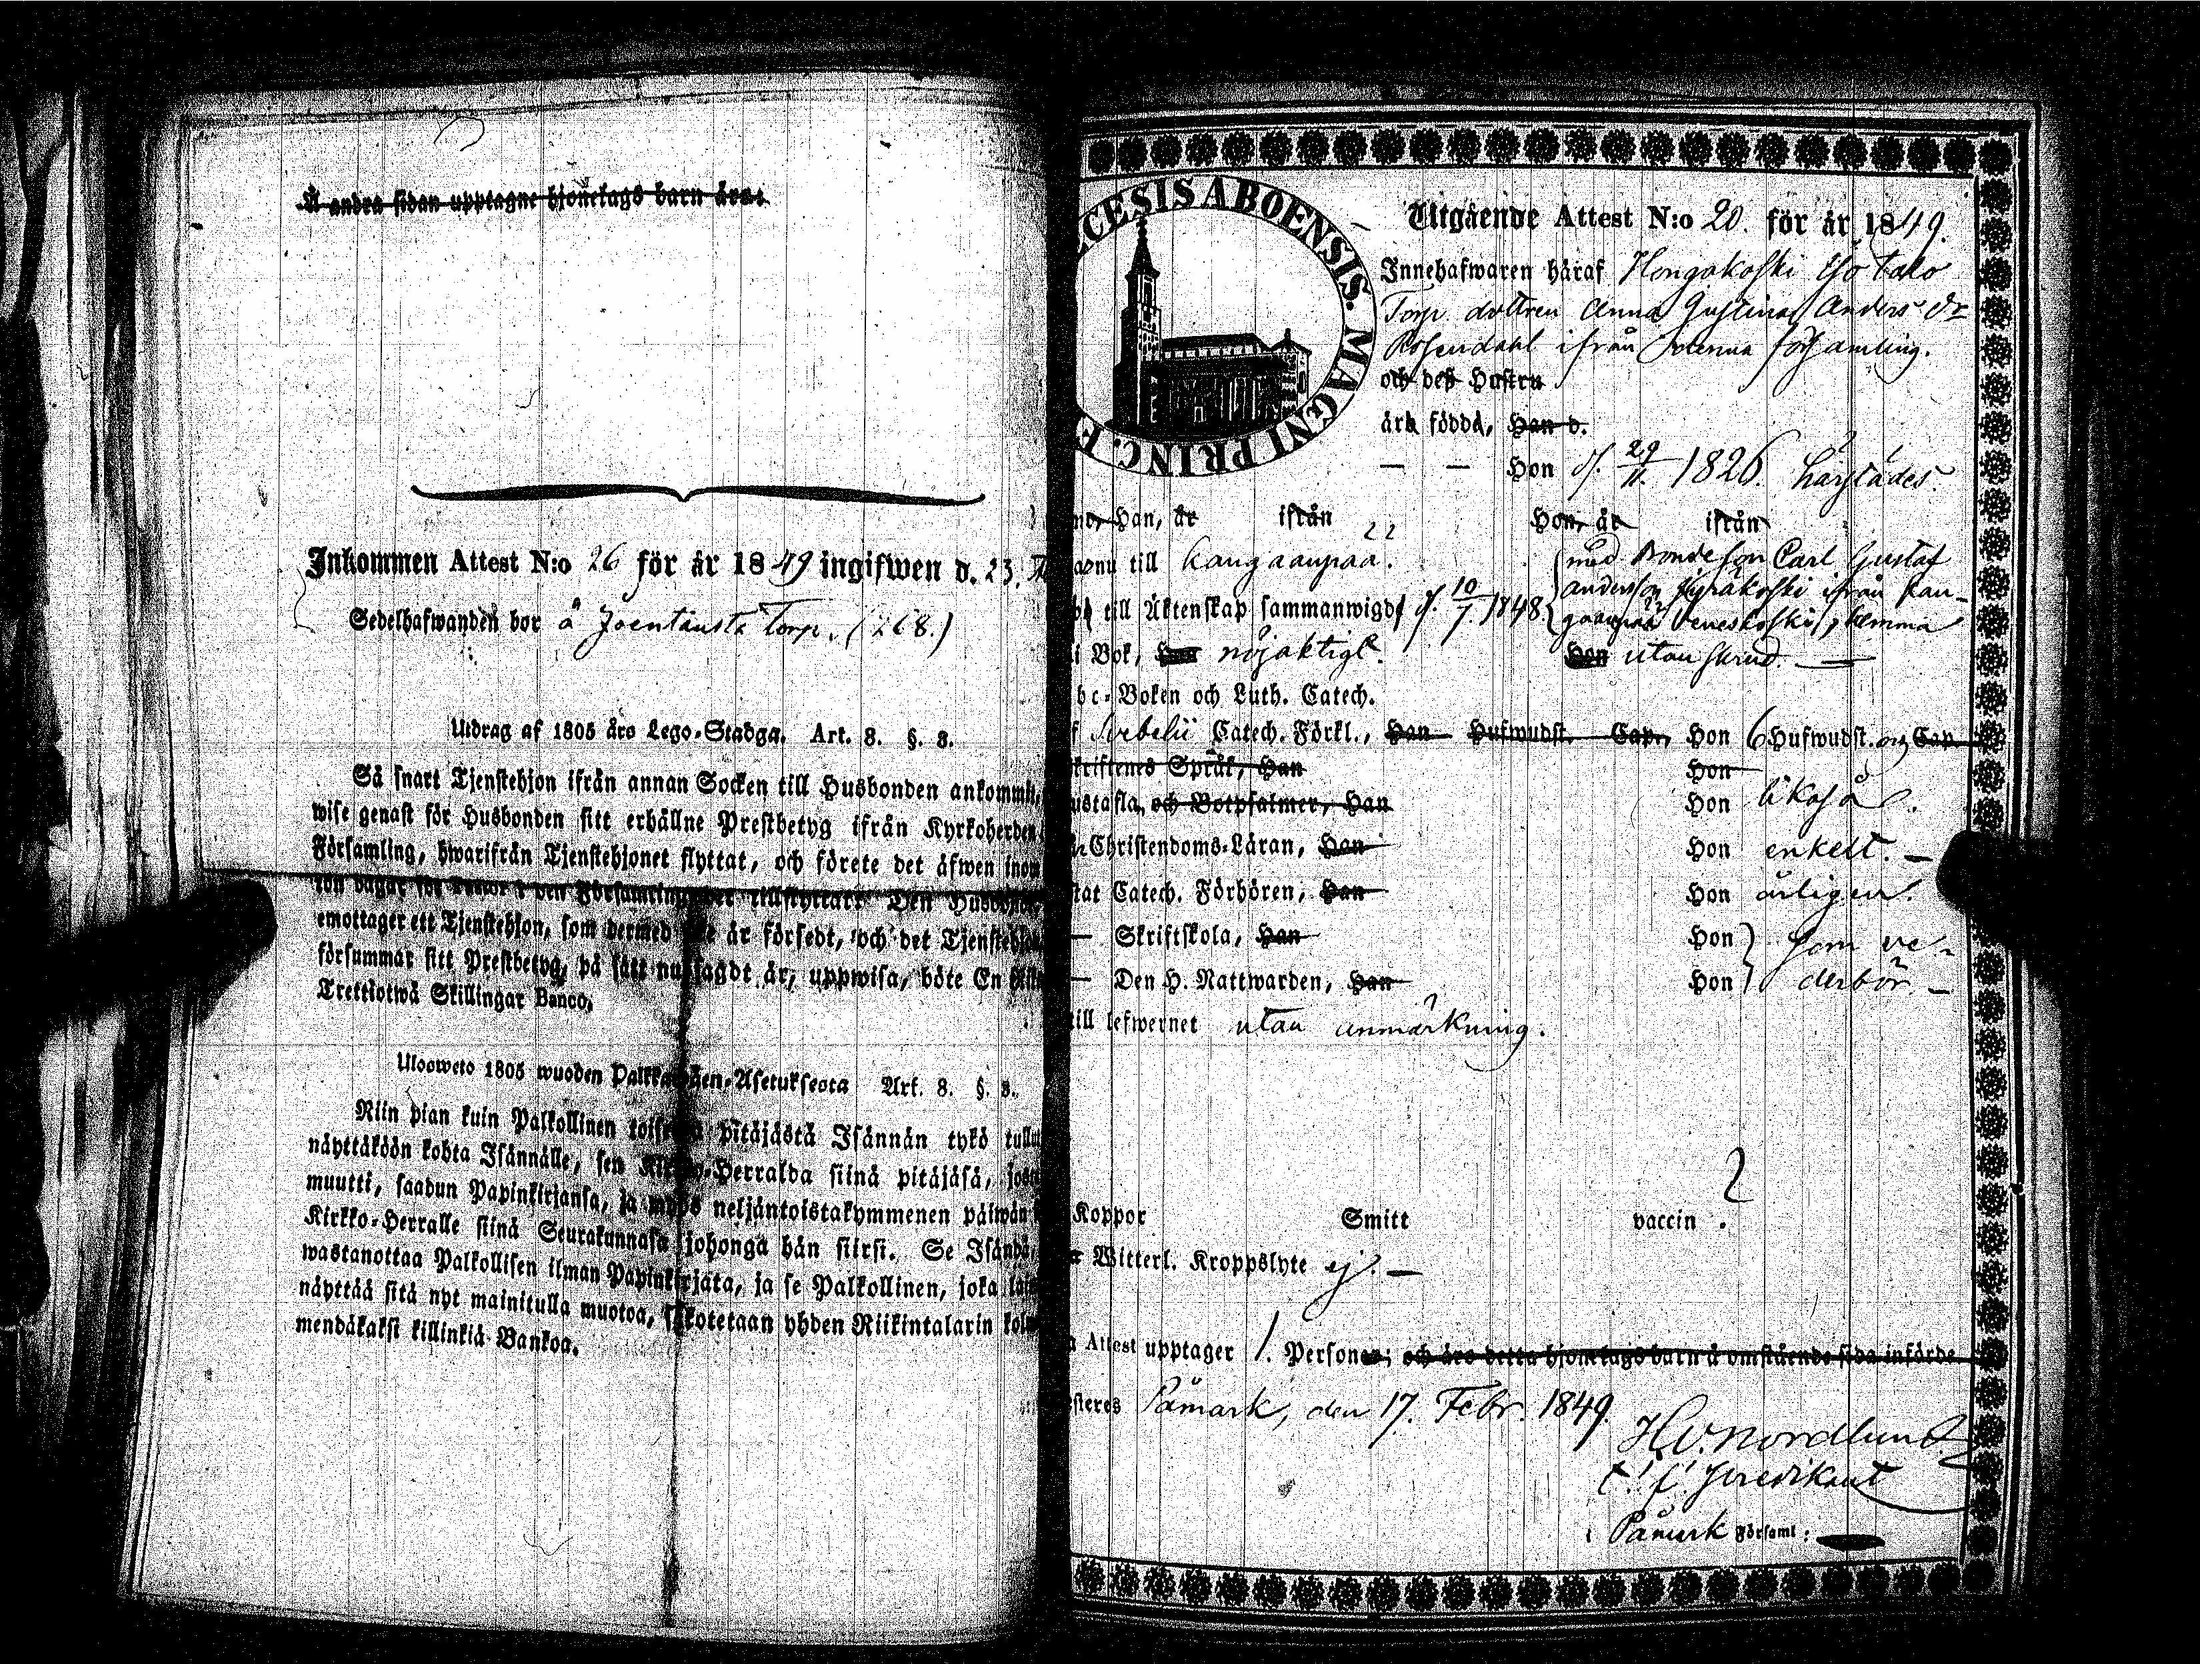 Å andra sidan upptagne hjonelags barn äro:
Inkommen Attest N:o 26 för år 1849 ingifwen d. 23.
Sedelhafwanden bor å Joentausta Torp. (268.)
Utdrag af 1805 års Lego-Stadga. Art. 8. §. 8.
Så snart Tjenstehjon ifrån annan Socken till Husbonden ankommit,
wise genast för Husbonden sitt erhållne Prestbetyg ifrån Kyrkoherden
Församling, hwarifrån Tjenstehjonet flyttat, och förete det äfwen inom
emottager ett Tjenstehjon, som dermed är försedt, och det Tjenstehjon
försummar sitt Prestbetyg, på sätt nu sagdt är, uppwisa, böte En
Trettiotwå Skillingar Banco.
Ulosweto 1805 wuoden Asetuksesta Art. 8. §. 8.
Niin pian kuin Palkollinen pitäjästä Isännän tykö tullut
näyttäköön kohta Isännälle, sen Herralda siinä pitäjäsä,
muutti, saadun Papinkirjansa, ja myös neljäntoistakymmenen päiwän
Kirkko-Herralle siinä Seurakunnasa johonga hän siirsi. Se Isändä,
wastanottaa Palkollisen ilman Papinkirjata, ja se Palkollinen, joka
näyttää sitä nyt mainitulla muotoa, sakotetaan yhden Riikintalarin
mendäkaksi killinkiä Bankoa.
CESIS ABOENSIS. MAGNI PRINC. F
Utgående Attest N:o 20. för år 1849.
Innehafwaren häraf Hongakoski
Torp dottren Anna Gustina Anders dr
Rosendahl ifrån församling.
och deß Hustru
äro födde, Han d.
— — Hon d. 29/11. 1826. härstädes.
Han, är ifrån Hon, är ifrån
nu till Kangaanpää.
med Bonde son Carl Gustaf
andersson Kyräkoski ifrån Kan-
till Äktenskap sammanwigd d. 10/7. 1848.
i Bok, nöjaktigt. Hon utan
bc-Boken och Luth. Catech.
Catech. Förkl., Han Hufwudst. Cap., Hon 6 Hufwudst. och Cap.
kriftenes Språk, Han Hon
ustafla, och Botpsalmer, Han Hon likaså.
Christendoms-Läran, Han Hon enkelt. —
Catech. Förhören, Han Hon årligen.
— Skriftskola, Han Hon som ve-
— Den H. Nattwarden, Han Hon derbör. —
till lefwernet utan anmärkning.
Koppor Smitt vaccin. ?
Witterl. Kroppslyte ej. —
Attest upptager 1. Personer; och äro detta hjonelags barn å omstående sida införde.
Påmark, den 17. Febr. 1849.
H. V. Nordlund
t. f. Predikant
i Påmark Församl: